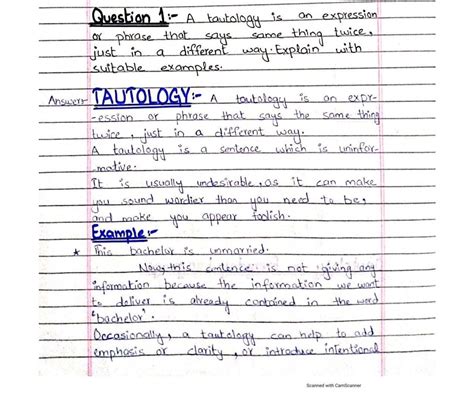 Question 1:- A tautology is an expression
or phrase that says same thing twice,
just in a different way. Explain with
suitable examples.
Answer:- TAUTOLOGY:- A tautology is an expr-
-ession or phrase that says the same thing
twice, just in a different way.
A tautology is a sentence which is uninfor-
-mative.
It is usually undesirable, as it can make
you sound wordier than you need to be,
and make you appear foolish.
Example:-
* This bachelor is unmarried.
Now, this sentence is not giving any
information because the information we want
to deliver is already contained in the word
'bachelor'.
Occasionally, a tautology can help to add
emphasis or clarity, or introduce intentional
Scanned with CamScanner